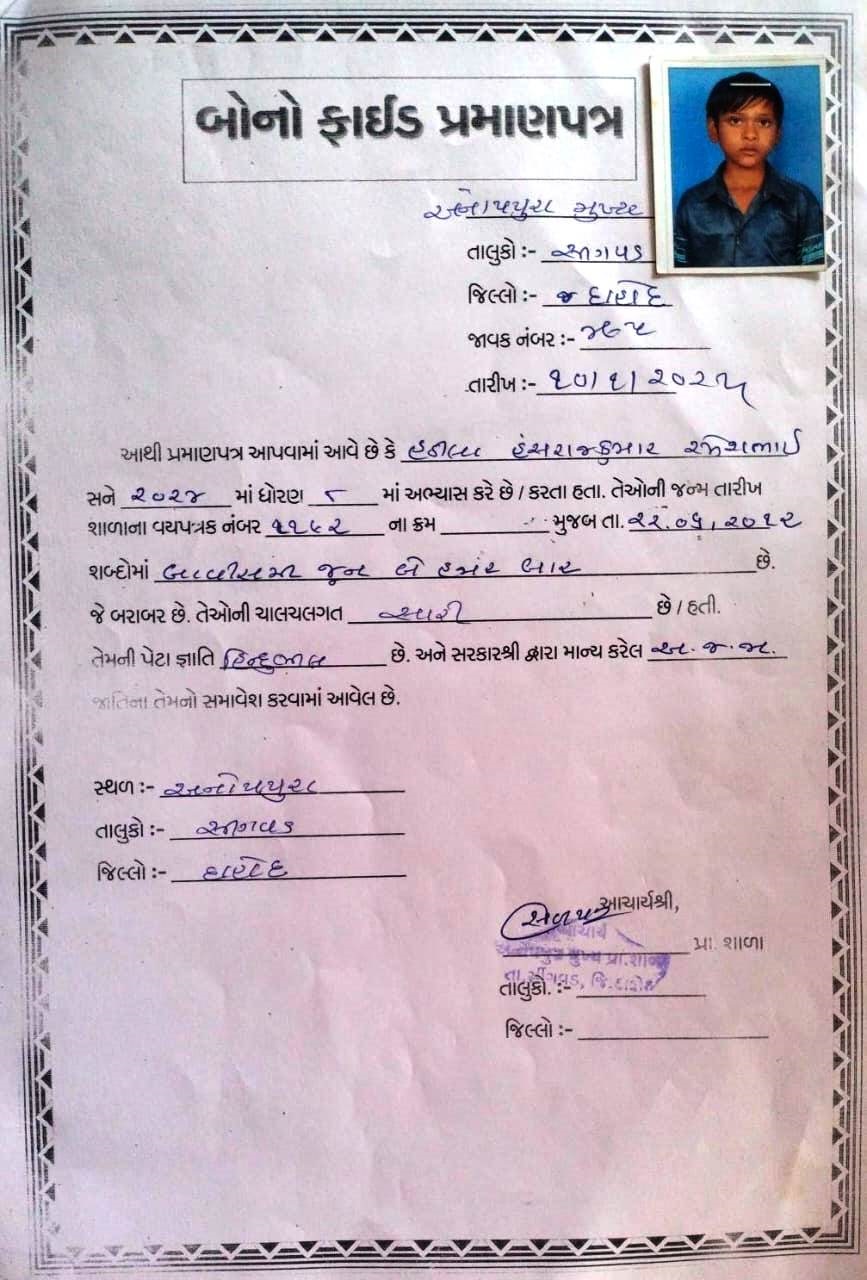 બોનો ફાઈડ પ્રમાણપત્ર
અનોપપુરા મુખ્ય
તાલુકો :- સીંગવડ
જિલ્લો :- જ દાહોદ
જાવક નંબર :-
તારીખ :- ૧૦/૧/૨૦૨૫
આથી પ્રમાણપત્ર આપવામાં આવે છે કે હંસરાજકુમાર રમેશભાઈ
સને ૨૦૨૪ માં ધોરણ ૮ માં અભ્યાસ કરે છે / કરતા હતા. તેઓની જન્મ તારીખ
શાળાના વયપત્રક નંબર ૧૧૯૨ ના ક્રમ મુજબ તા. ૨૨.૦૬.૨૦૧૨
શબ્દોમાં બાવીસમી જૂન બે હજાર બાર છે.
જે બરાબર છે. તેઓની ચાલચલગત સારી છે / હતી.
તેમની પેટા જ્ઞાતિ હિન્દુભીલ છે. અને સરકારશ્રી દ્વારા માન્ય કરેલ અ.જ.જા.
જાતિના તેમનો સમાવેશ કરવામાં આવેલ છે.
સ્થળ :- અનોપપુરા
તાલુકો :- સીંગવડ
જિલ્લો :- દાહોદ
આચાર્યશ્રી,
આચાર્ય
પ્રા. શાળા
અનોપપુરા મુખ્ય પ્રા.શાળા
તા.સીંગવડ, જિ.દાહોદ
તાલુકો. :-
જિલ્લો :-